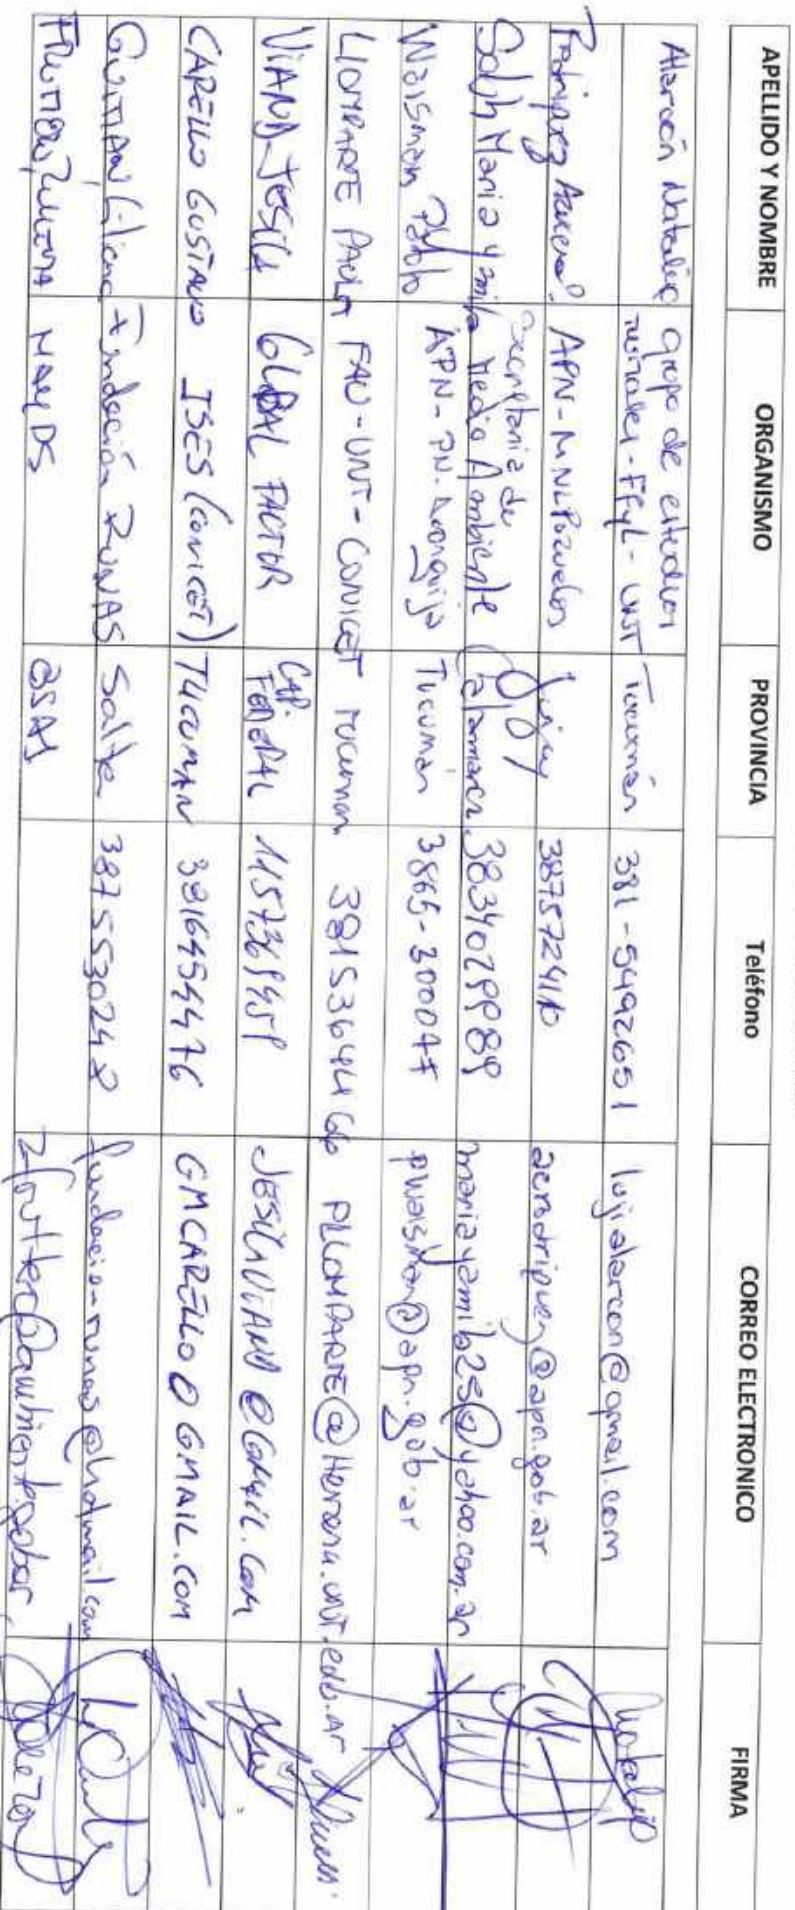 APELLIDO Y NOMBRE ORGANISMO PROVINCIA Teléfono CORREO ELECTRONICO FIRMA
Alarcón Natalia grupo de estudios rurales - FFyL - UNT Tucumán 381-5492651 lujialarcon@gmail.com
Rodriguez APN - MNL Pozuelos Jujuy 3875724110 aerodriguez@apn.gob.ar
Salih Maria Yamila Secretaria de Medio Ambiente Catamarca 3834029989 mariayamila25@yahoo.com.ar
Waisman Pablo APN - PN. Aconquija Tucumán 3865-300047 pwaisman@apn.gob.ar
LLOMPARTE PAULA FAU-UNT-CONICET Tucuman PLLOMPARTE@Herrera.UNT.edu.Ar
VIAND JESICA GLOBAL FACTOR CAP. FEDERAL 1157369459 JESICAVIAND@GMAIL.COM
CARELLO GUSTAVO ISES (CONICET) TUCUMAN 3816454476 GMCARELLO@GMAIL.COM
GUZMAN Liliana Fundación RUNAS Salta 3875530248 fundacion-runas@hotmail.com
MAyDS BSAS